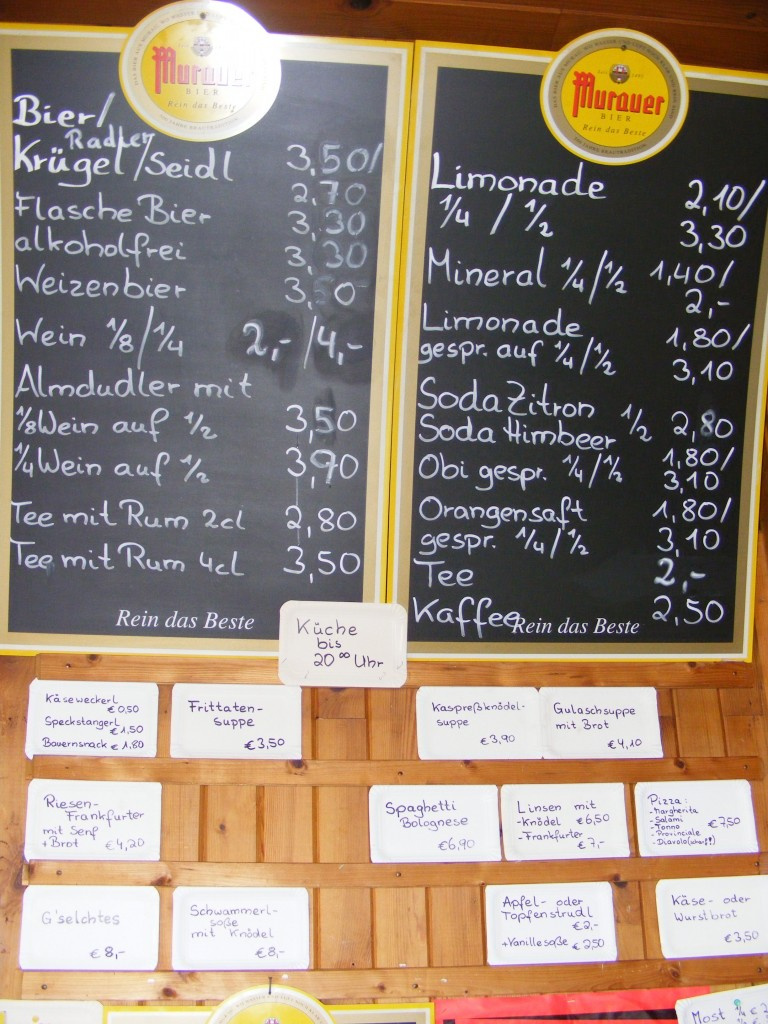 Murauer
BIER
Rein das Beste
Bier/
Radler
Krügel/Seidl 3,50/
2,70
Flasche Bier 3,30
alkoholfrei 3,30
Weizenbier 3,50
Wein 1/8/1/4 2,-/4,-
Almdudler mit
1/8Wein auf 1/2 3,50
1/4Wein auf 1/2 3,90
Tee mit Rum 2cl 2,80
Tee mit Rum 4cl 3,50
Rein das Beste
Murauer
BIER
Rein das Beste
Limonade 2,10/
1/4 / 1/2 3,30
Mineral 1/4/1/2 1,40/
2,-
Limonade 1,80/
gespr. auf 1/4/1/2 3,10
Soda Zitron 1/2 2,80
Soda Himbeer
Obi gespr. 1/4/1/2 1,80/
3,10
Orangensaft 1,80/
gespr. 1/4/1/2 3,10
Tee 2,-
Kaffee 2,50
Rein das Beste
Küche
bis
20°° Uhr
Käseweckerl
€ 0,50
Speckstangerl
€ 1,50
Bauernsnack € 1,80
Frittaten-
suppe
€ 3,50
Kaspreßknödel-
suppe
€ 3,90
Gulaschsuppe
mit Brot
€ 4,10
Riesen-
Frankfurter
mit Senf
+ Brot € 4,20
Spaghetti
Bolognese
€ 6,90
Linsen mit
-Knödel € 6,50
-Frankfurter
€ 7,-
Pizza:
-Margherita
-Salami € 7,50
-Tonno
-Provinciale
-Diavolo (scharf!)
G'selchtes
€ 8,-
Schwammerl-
soße
mit Knödel
€ 8,-
Apfel- oder
Topfenstrudl
€ 2,-
+Vanillesoße € 2,50
Käse- oder
Wurstbrot
€ 3,50
Most 1/4 €